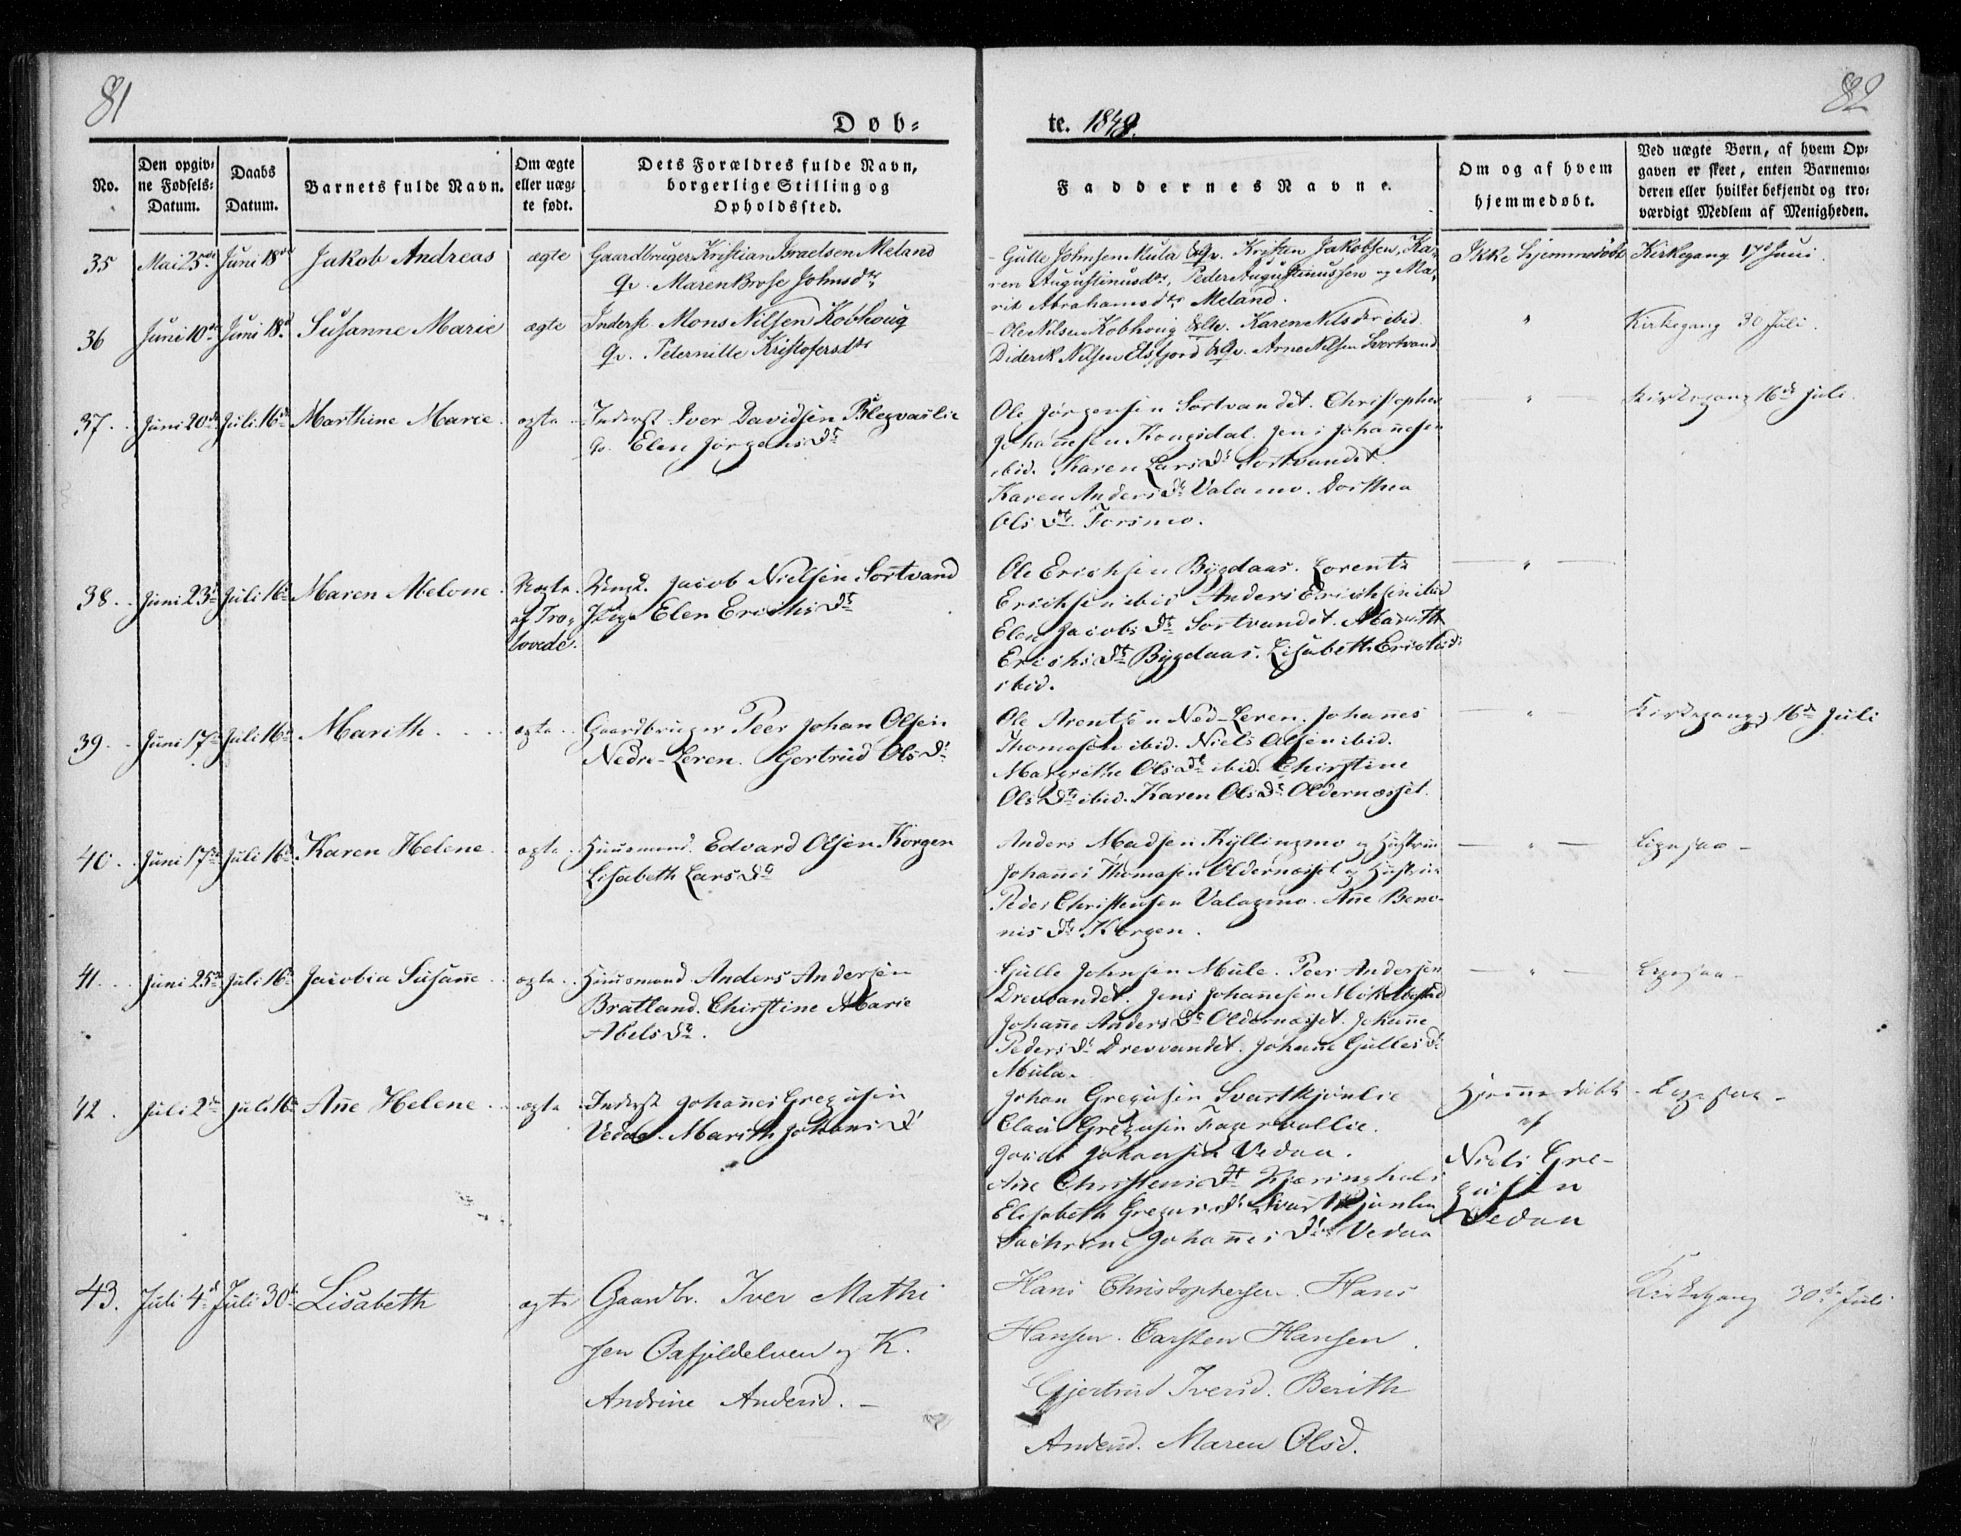 81
82
Døb-
te. 1849.
No.
Den opgiv-
ne Fødsels-
Datum.
Daabs
Datum.
Barnets fulde Navn.
Om ægte
eller uæg-
te født.
Dets Forældres fulde Navn,
borgerlige Stilling og
Opholdssted.
Faddernes Navne.
Om og af hvem
hjemmedøbt.
Ved uægte Børn, af hvem Op-
gaven er skeet, enten Barnemo-
deren eller hvilket bekjendt og tro-
værdigt Medlem af Menigheden.
35 Mai 25de Juni 18de Jakob Andreas ægte Gaardbruger Kristian Israelsen Meland
Qv. Maren Brose Johnsdtr
Gulle Johnsen Mula & Qv. Kristen Jakobsen, Ka-
ren Augustinusdtr, Peder Augustinussen og Ma-
rit Abrahamsdtr Meland.
Ikke hjemmedøbt Kirkegang 17d Juni.
36 Juni 10de Juni 18d Susanne Marie ægte Inderst Mons Nilsen Kobhoug
Qv. Peternille Kristofersdtr
Ole Nilsen Kobhoug & Qv. Karen Nilsdtr ibid.
Diderek Nilsen Elsfjord & Qv. Arne Nilsen Svortvand
" Kirkegang 30 Juli.
37. Juni 20de Juli 16de Marthine Marie. ægte. Inderst Iver Davidsen Blegvaslie
Qv. Elen Jørgensdr
Ole Jørgensen Sortvandet. Christopher
Johannesen Kongsdal. Jens Johannesen
ibid. Karen Larsdr Sortvandet.
Karen Andersdr Valamo. Dorthea
Olsdtr Forsmo.
" Kirkegang 16de Juli.
38. Juni 23de Juli 16de Maren Melone. Uægte af Tro-
lovede.
Ungk. Jacob Nielsen Sortvand
Pige Elen Erichsdr
Ole Erichsen Bygdaas. Lorents
Erichsen ibid Anders Erichsen ibid
Elen Jacobsdr Sortvandet. Marith
Erichsdr Bygdaas. Lisabeth Erichsd:
ibid.
"
39. Juni 17de Juli 16de Marith. ægte. Gaardbruger Peer Johan Olsen
Nedre-Leren. Gjertrud Olsdr
Ole Arentsen Ned-Leren. Johannes
Thomasen ibid. Niels Olsen ibid.
Margrethe Olsdr ibid. Chirstine
Olsdtr ibid. Karen Olsdr Oldernæsset.
" Kirkegang 16de Juli
40. Juni 17de Juli 16de Karen Helene. ægte. Huusmand Edvard Olsen Korgen
Lisabeth Larsdr
Anders Madsen Kyllingmo og Hustrue
Johannes Thomasen Oldernæsset og Hustrue
Peder Christensen Valagmo. Ane Beno-
nisdr Korgen.
" Ligesaa -
41. Juni 25de Juli 16de Jacobia Susanne. ægte. Huusmand Anders Andersen
Bratland. Chirstine Marie
Abelsdr.
Gulle Johnsen Mule. Peer Andersen
Drevvandet. Jens Johannesen
Johanne Andersdr Oldernæsset. Johanne
Pedersdr Drevvandet. Johanne Gullesdr
Mula.
" Ligesaa -
42. Juli 2de Juli 16de Ane Helene. ægte. Inderst Johannes Gregusen
Vedaa. Marith Johansdr
Johan Gregusen Svartkjønlie
Claus Gregusen Fagervollie.
Johansen Vedaa.
Ane Christensdr Kjæringhals
Elisabeth Gregusdr Svartkjønlie
Johannesdr Vedaa
Hjemmedøbt
af
Niels Gre-
gusen
Vedaa
Ligesaa -
43. Juli 4d Juli 30te Lisabeth ægte Gaardbr. Iver Mathi
sen Oafjeldelven og K.
Andrine Andersd. -
Hans Christophersen. Hans
Hansen. Carsten Hansen.
Gjertrud Iversd. Berith
Andersd. Maren Olsd.
Kirkegang 30te Juli